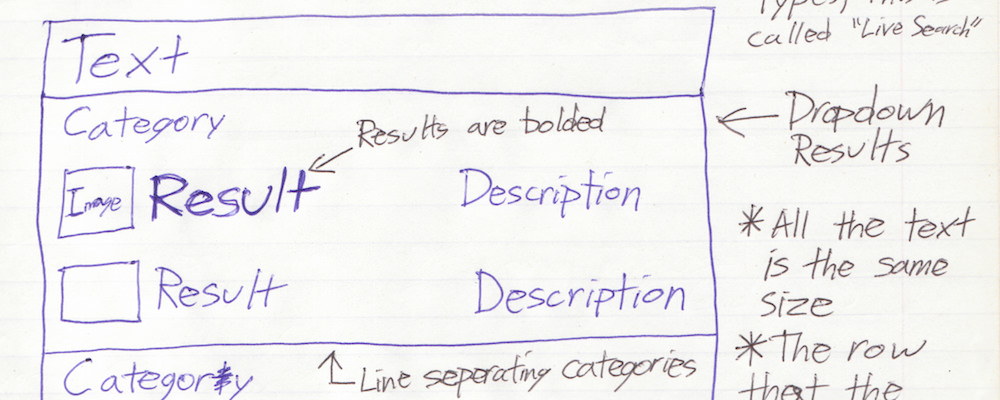 Types, this is
called "Live Search"
Text
Category
Results are bolded
Dropdown
Results
Image Result Description
*All the text
is the same
size
Result Description
*The row
that the
Line seperating categories
Category